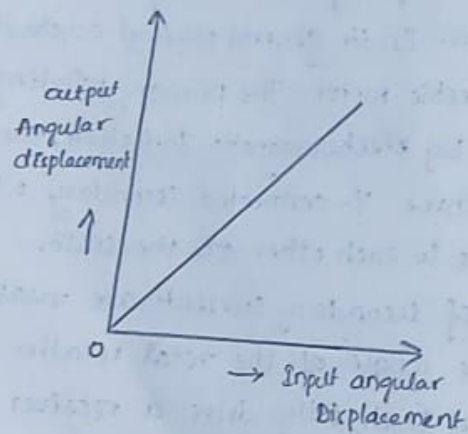 output
Angular
displacement
O
→ Input angular
Displacement